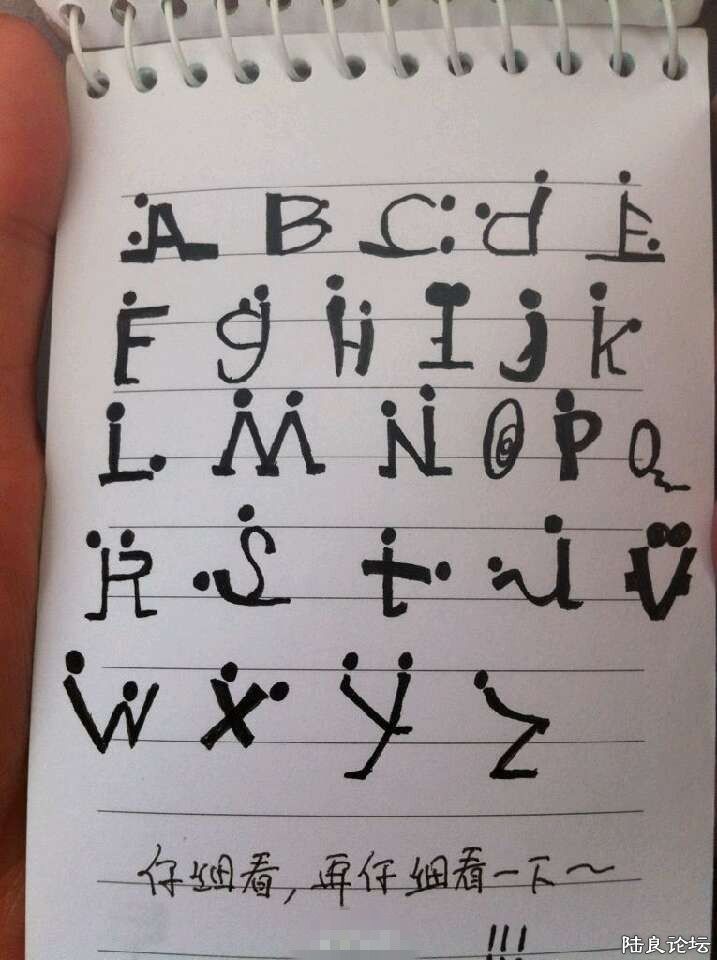 A B C d E
F g H I j K
L M N @ P Q
R S t U V
W X Y Z
仔细看，再仔细看一下～
!!!
陆良论坛